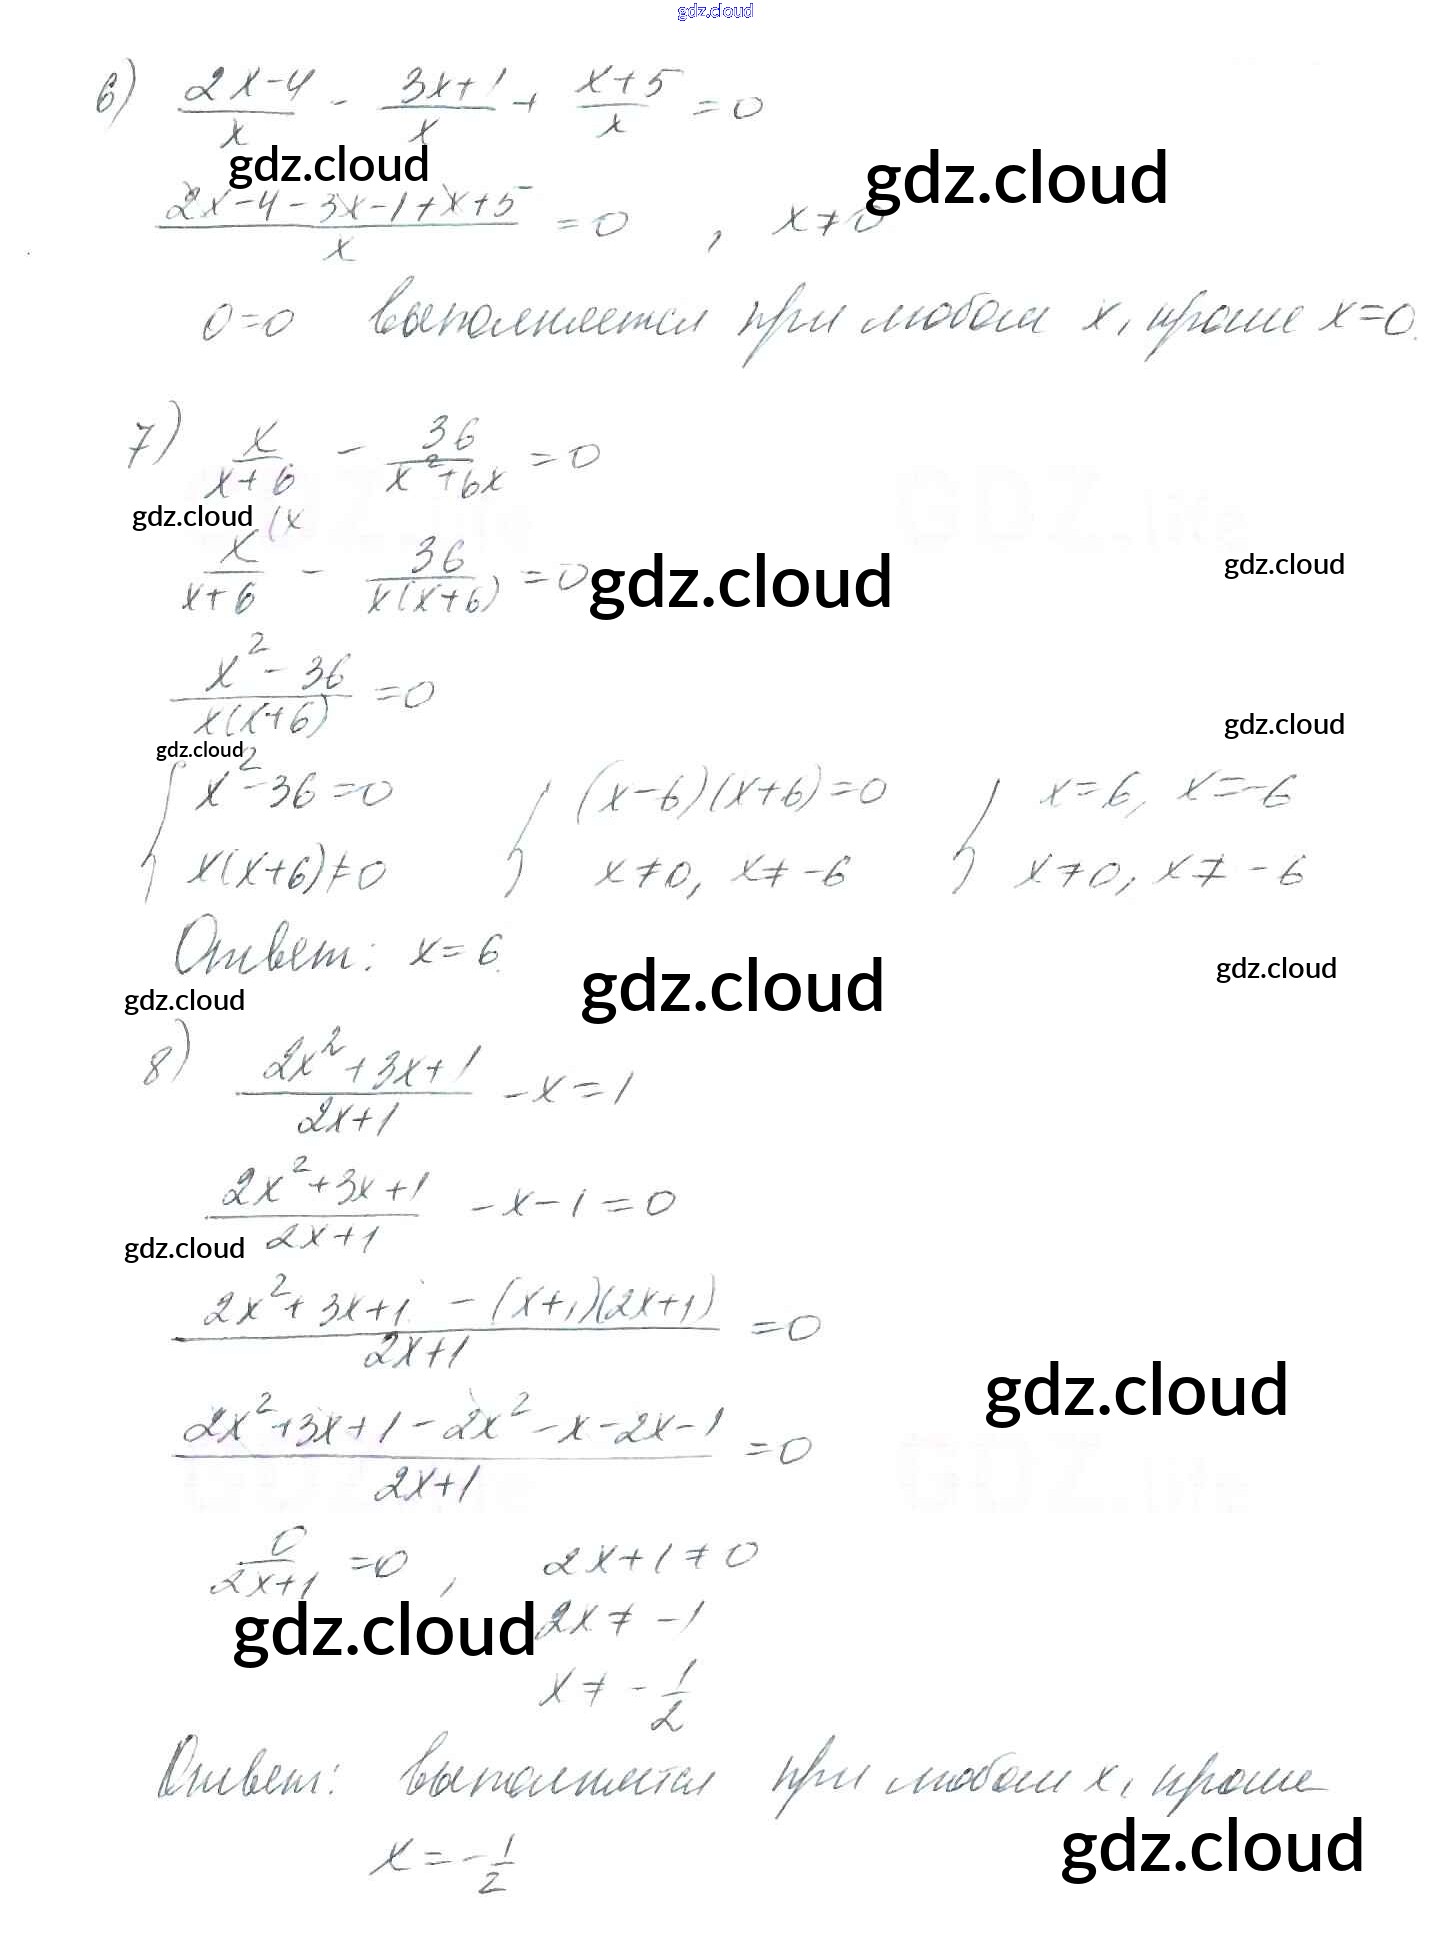 gdz.cloud
6) (2x-4)/x - (3x+1)/x + (x+5)/x = 0
gdz.cloud
gdz.cloud
(2x-4-3x-1+x+5)/x = 0 , x≠0
0=0 выполняется при любом x, кроме x=0.
7) x/(x+6) - 36/(x²+6x) = 0
GDZ.life GDZ.life
gdz.cloud
(x
x/(x+6) - 36/(x(x+6)) = 0
gdz.cloud
gdz.cloud
(x²-36)/(x(x+6)) = 0
gdz.cloud
gdz.cloud
{ x²-36=0 { (x-6)(x+6)=0 { x=6, x=-6
x(x+6)≠0 x≠0, x≠-6 x≠0, x≠-6
Ответ: x=6.
gdz.cloud
gdz.cloud
gdz.cloud
8) (2x²+3x+1)/(2x+1) -x=1
(2x²+3x+1)/(2x+1) -x-1=0
gdz.cloud
(2x²+3x+1-(x+1)(2x+1))/(2x+1) =0
gdz.cloud
(2x²+3x+1-2x²-x-2x-1)/(2x+1) =0
GDZ.life GDZ.life
0/(2x+1) =0 , 2x+1≠0
gdz.cloud
2x≠-1
x≠-1/2
Ответ: выполняется при любом x, кроме
gdz.cloud
x=-1/2